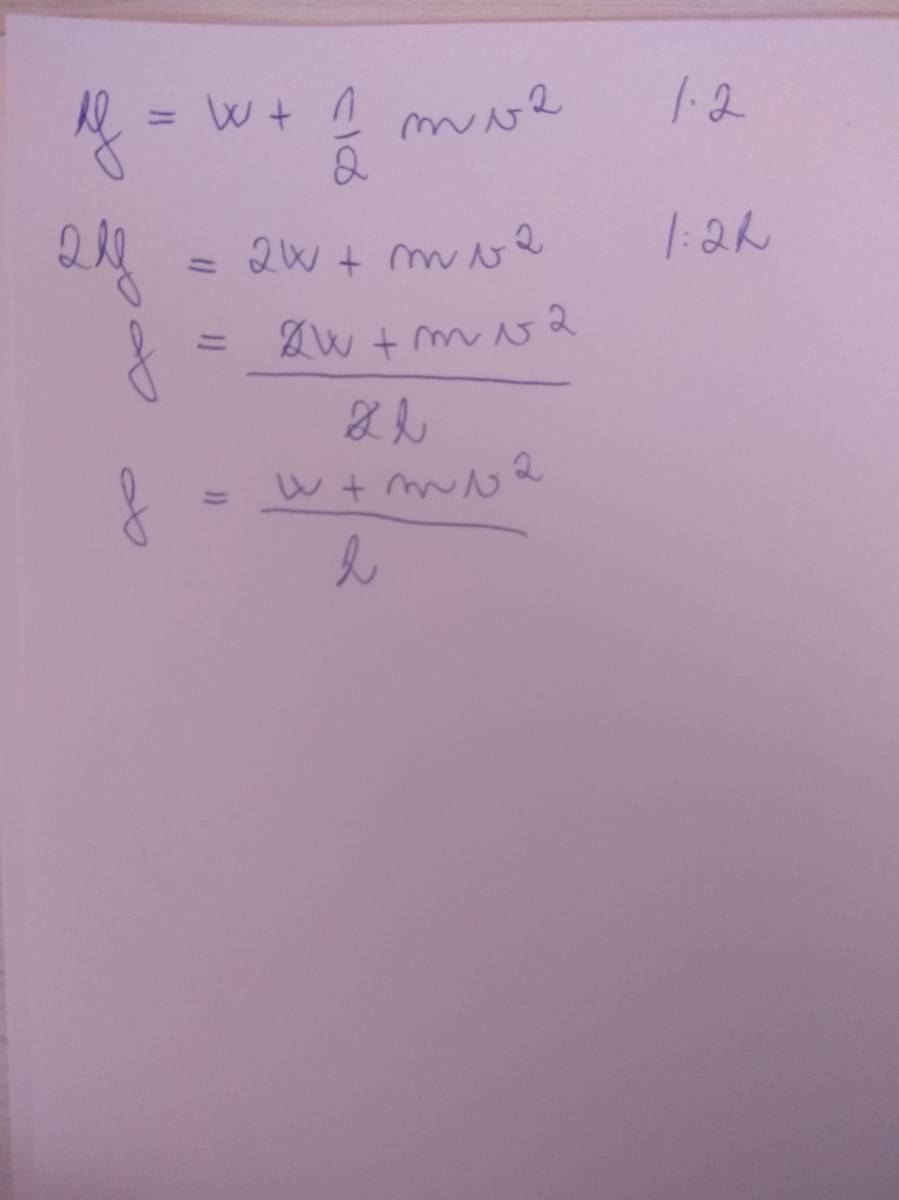 hf = W + 1/2 mv² | · 2
2hf = 2W + mv² | : 2h
f = 2W + mv² / 2h
f = W + mv² / h